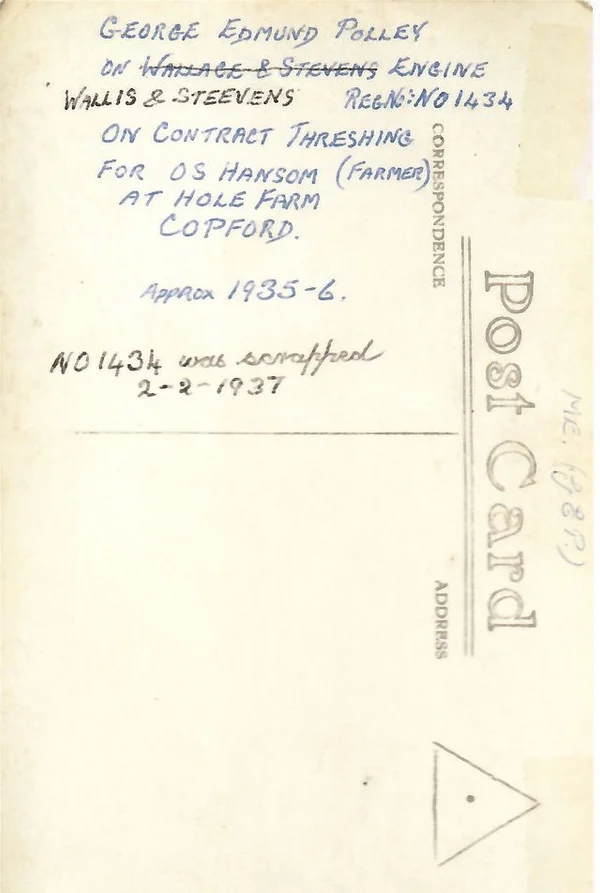 GEORGE EDMUND POLLEY
ON WALLACE & STEVENS ENGINE
WALLIS & STEEVENS REGNº: NO 1434
ON CONTRACT THRESHING
FOR OS HANSOM (FARMER)
AT HOLE FARM
COPFORD.
APPROX 1935-6.
NO 1434 was scrapped
2-2-1937
CORRESPONDENCE
Post Card
ADDRESS